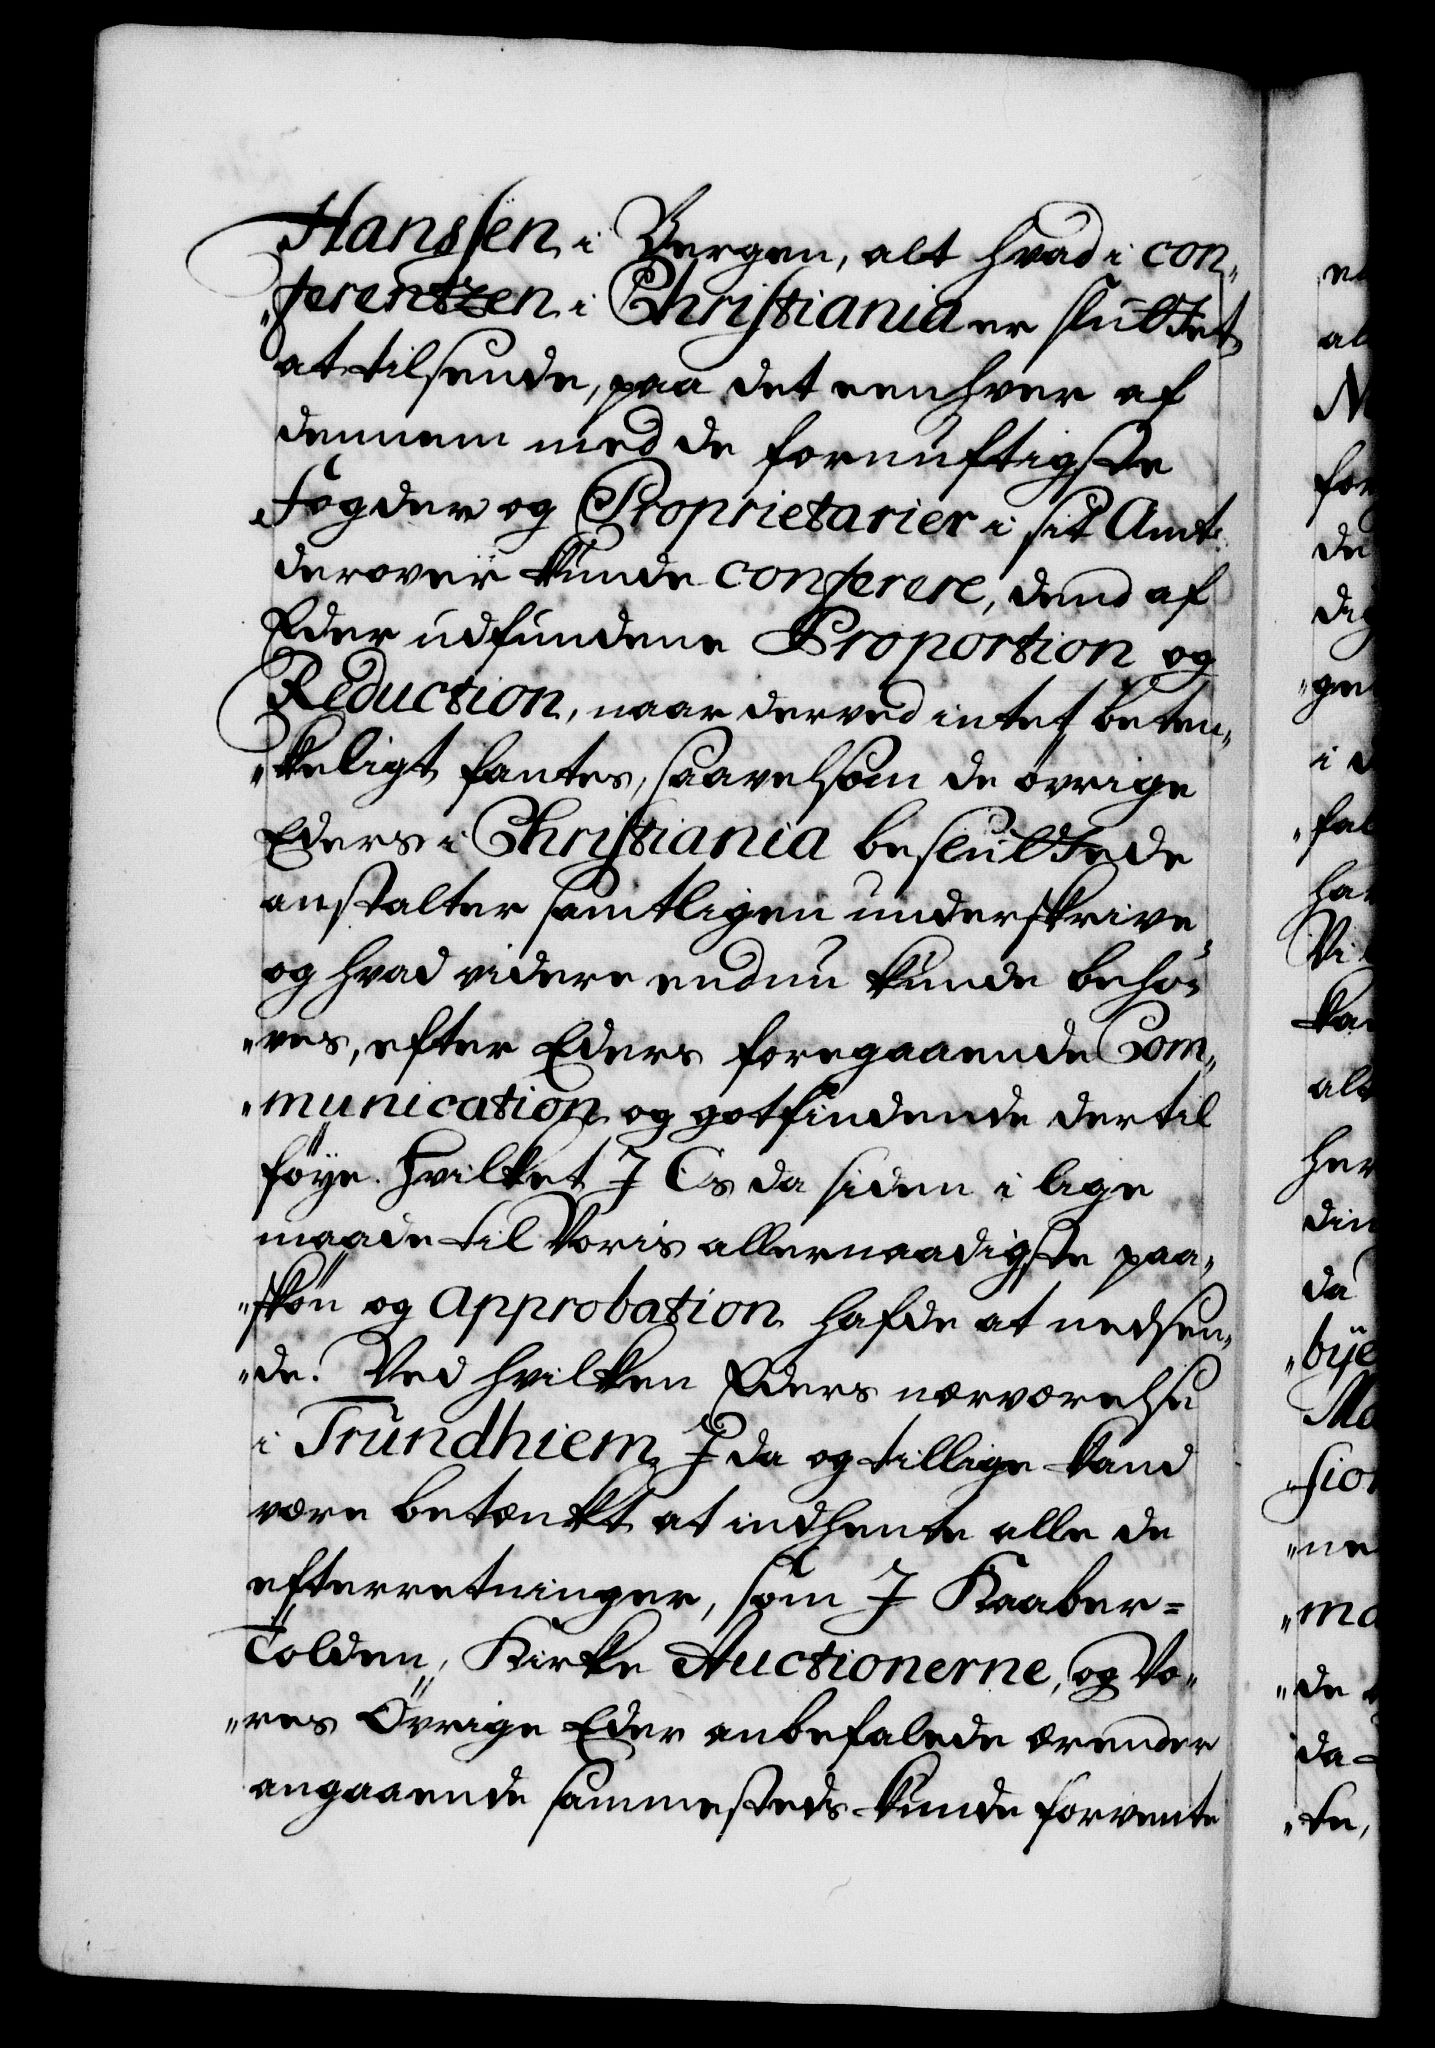 Hanssen i Bergen, alt hvad i con„
„ferentzen i Christiania er sluttet
at tilsende, paa det een hver af
dennem med de fornuftigste
Fogder og Proprietarier i sit Amt
derover kunde conferere, dend af
Eder udfundene Proportion og
Reduction, naar derved intet beten„
„keligt fantes, saavelsom de övrige
Eders i Christiania besluttede
anstalter samtligen underskrive
og hvad videre endnu kunde behö„
„ves, efter Eders foregaaende Com„
„munication og gotfindende dertil
föye. Hvilket I Os da siden i lige
maade til Voris allernaadigste paa„
„skön og approbation hafde at nedsen„
„de. Ved hvilken Eders nærværelse
i Trundhiem I da og tillige kand
være betænkt at indhente alle de
efterretninger, som I Kaaber=
Tolden, Kirke Auctionerne, og Vo„
„res Övrige Eder anbefalede ærender
angaaende sammesteds kunde forvente